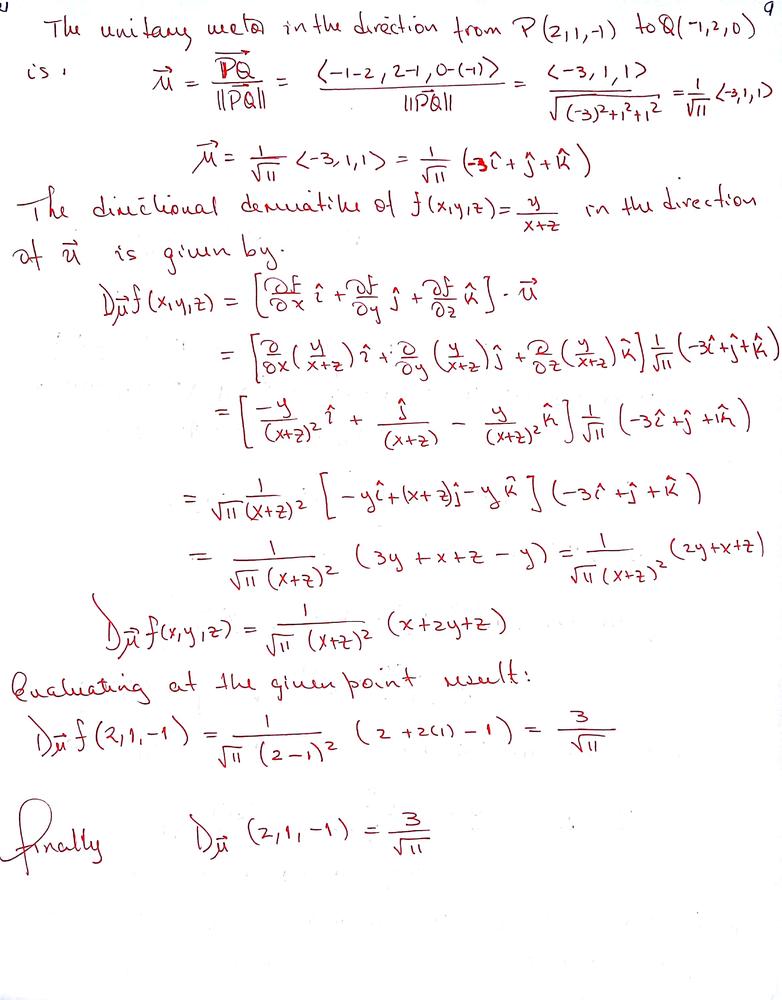 9
The unitary vector in the direction from P(2,1,-1) to Q(-1,2,0)
is: \vec{u} = \frac{\vec{PQ}}{||\vec{PQ}||} = \frac{<-1-2, 2-1, 0-(-1)>}{||\vec{PQ}||} = \frac{<-3, 1, 1>}{\sqrt{(-3)^2+1^2+1^2}} = \frac{1}{\sqrt{11}} <-3,1,1>
\vec{u} = \frac{1}{\sqrt{11}} <-3,1,1> = \frac{1}{\sqrt{11}} (-3\hat{i}+\hat{j}+\hat{k})
The directional derivative of f(x,y,z) = \frac{y}{x+z} in the direction
of \vec{u} is given by.
D_{\vec{u}} f(x,y,z) = [\frac{∂f}{∂x} \hat{i} + \frac{∂f}{∂y} \hat{j} + \frac{∂f}{∂z} \hat{k}] · \vec{u}
= [\frac{∂}{∂x}(\frac{y}{x+z})\hat{i} + \frac{∂}{∂y}(\frac{y}{x+z})\hat{j} + \frac{∂}{∂z}(\frac{y}{x+z})\hat{k}] \frac{1}{\sqrt{11}} (-3\hat{i}+\hat{j}+\hat{k})
= [\frac{-y}{(x+z)^2} \hat{i} + \frac{\hat{j}}{(x+z)} - \frac{y}{(x+z)^2} \hat{k}] \frac{1}{\sqrt{11}} (-3\hat{i}+\hat{j}+1\hat{k})
= \frac{1}{\sqrt{11}(x+z)^2} [-y\hat{i}+(x+z)\hat{j}-y\hat{k}] (-3\hat{i}+\hat{j}+\hat{k})
= \frac{1}{\sqrt{11}(x+z)^2} (3y+x+z-y) = \frac{1}{\sqrt{11}(x+z)^2} (2y+x+z)
D_{\vec{u}} f(x,y,z) = \frac{1}{\sqrt{11}(x+z)^2} (x+2y+z)
Evaluating at the given point result:
D_{\vec{u}} f(2,1,-1) = \frac{1}{\sqrt{11}(2-1)^2} (2+2(1)-1) = \frac{3}{\sqrt{11}}
finally D_{\vec{u}} (2,1,-1) = \frac{3}{\sqrt{11}}